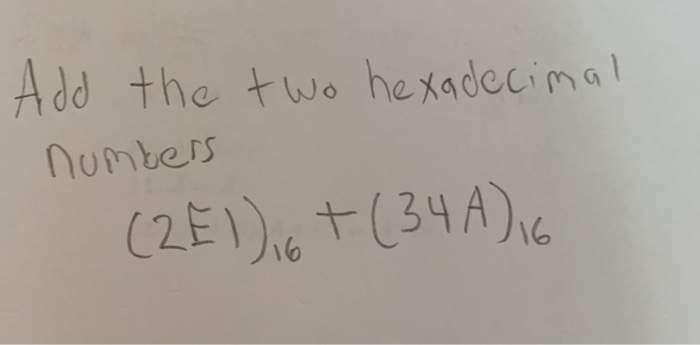 Add the two hexadecimal
numbers
(2E1)₁₆ + (34A)₁₆